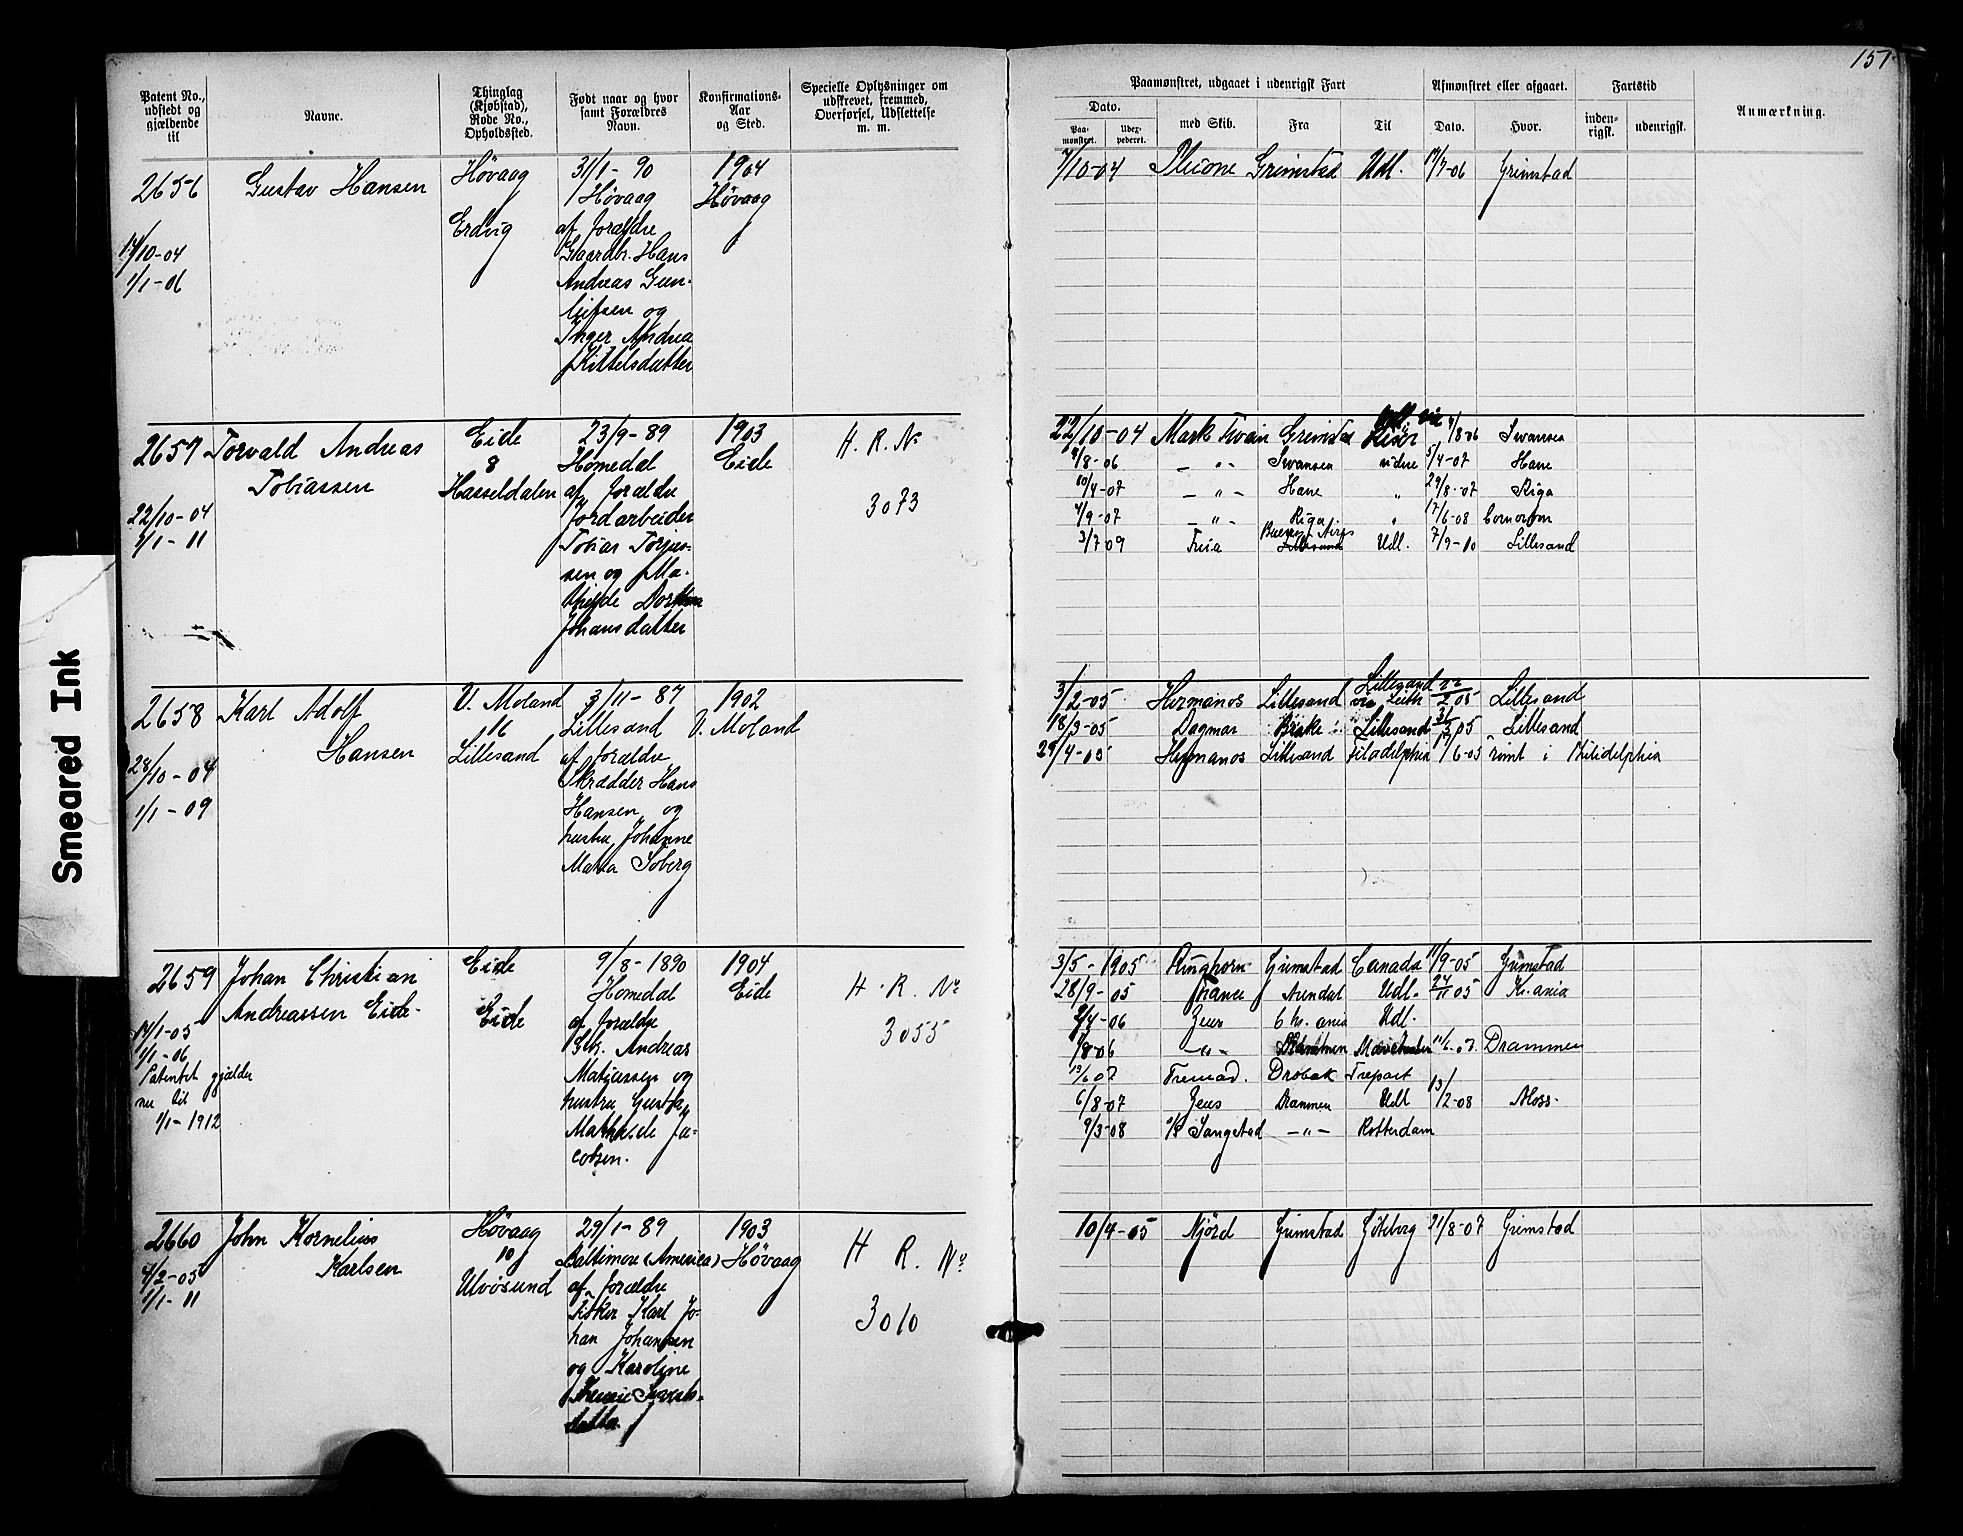 157
Patent No., udstedt og gjældende til
Navne.
Thinglag (Kjøbstad), Rode No., Opholdssted.
Født naar og hvor samt Forældres Navn.
Konfirmations-Aar og Sted.
Specielle Oplysninger om udskrevet, fremmed, Overførsel, Udslettelse m. m.
Paamønstret, udgaaet i udenrigsk Fart
Dato.
Paa-mønstret.
Udex-pederet.
med Skib.
Fra
Til
Afmønstret eller afgaaet.
Dato.
Hvor.
Fartstid
inden-rigsk.
udenrigsk.
Anmærkning.
2656
14/10-04
1/1-06
Gustav Hansen
Høvaag
Erdvig
31/1-90
Høvaag
af Forældre
Gaardbr. Hans
Andreas Gun-
Inger Andrea
Kittelsdatter
1904
Høvaag
7/10-04 Grimstad Udl. 17/7-06 Grimstad
2657
22/10-04
1/1-11
Torvald Andreas
Tobiassen
Eide
8
Hasseldalen
23/9-89
Homedal
af Forældre
Jordarbeider
Tobias Torjus-
sen og Ma-
Johansdatter
1903
Eide
H. R. No
3073
22/10-04 Mark Twain Grimstad
8/8-06 - " - Swansea videre 5/4-07 Havre
10/4-07 - " - Havre " 29/8-07 Riga
4/9-07 - " - Riga " 17/6-08
3/7 09 Buenos Aires Udl. 7/9-10 Lillesand
4/8-06 Swansea
2658
28/10-04
1/1-09
Karl Adolf
Hansen
V. Moland
16
Lillesand
3/11-87
Lillesand
af Forældre
Skrædder Hans
Hansen og
hustru Johanne
Maria Soberg
1902
V. Moland
3/2-05 Hermanos Lillesand Lillesand via Leith 22/2 05 Lillesand
18/3-05 Dagmar Brake Lillesand 31/3 05 Lillesand
29/4-05 Hermanos Lillesand Filadelphia 17/6-05 rømt i Philidelphia
2659
14/1-05
1/1-06
Patentet gjælder
nu til
1/1-1912
Johan Christian
Andreassen Eide.
Eide
Eide
9/8-1890
Homedal
af forældre
Andreas
Matiassen og
hustru Gusta
Mathilde Ja-
cobsen.
1904
Eide
H. R. No
3055
3/5-1905 Ringhorn Grimstad Canada 11/9-05 Grimstad
28/9-05 Arendal Udl. 27/11 05 Kr.ania
2/4-06 Zeus Chr.ania Udl.
1/8-06 - " - Drammen 11/6-07. Drammen
19/6 07 Drøbak
6/8-07 Zeus Drammen Udl 13/2-08 Moss.
9/3-08 Sangstad - " - Rotterdam
2660
4/2-05
1/1-11
John Kornelius
Karlsen
Høvaag
10
Ulvøsund
29/1-89
Baltimore (America)
af Forældre
Fisker Karl Jo-
han Johansen
og Karoline
1903
Høvaag
H R. No
3010
10/4-05 Njörd Grimstad Göteborg 21/8-07 Grimstad
Smeared Ink